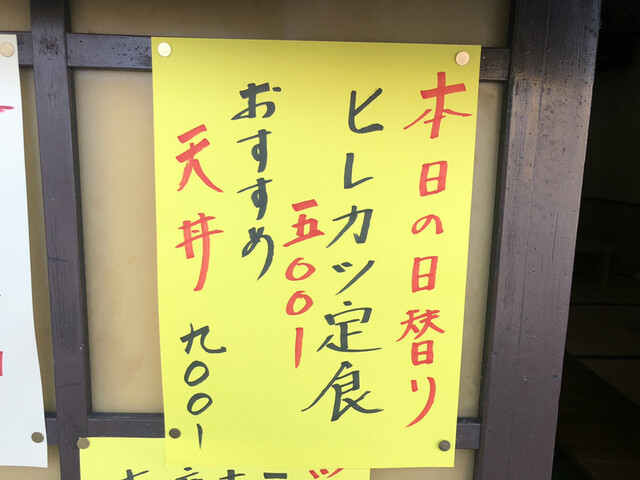 本日の日替り
ヒレカツ定食
五〇〇ー
おすすめ
天丼
九〇〇ー